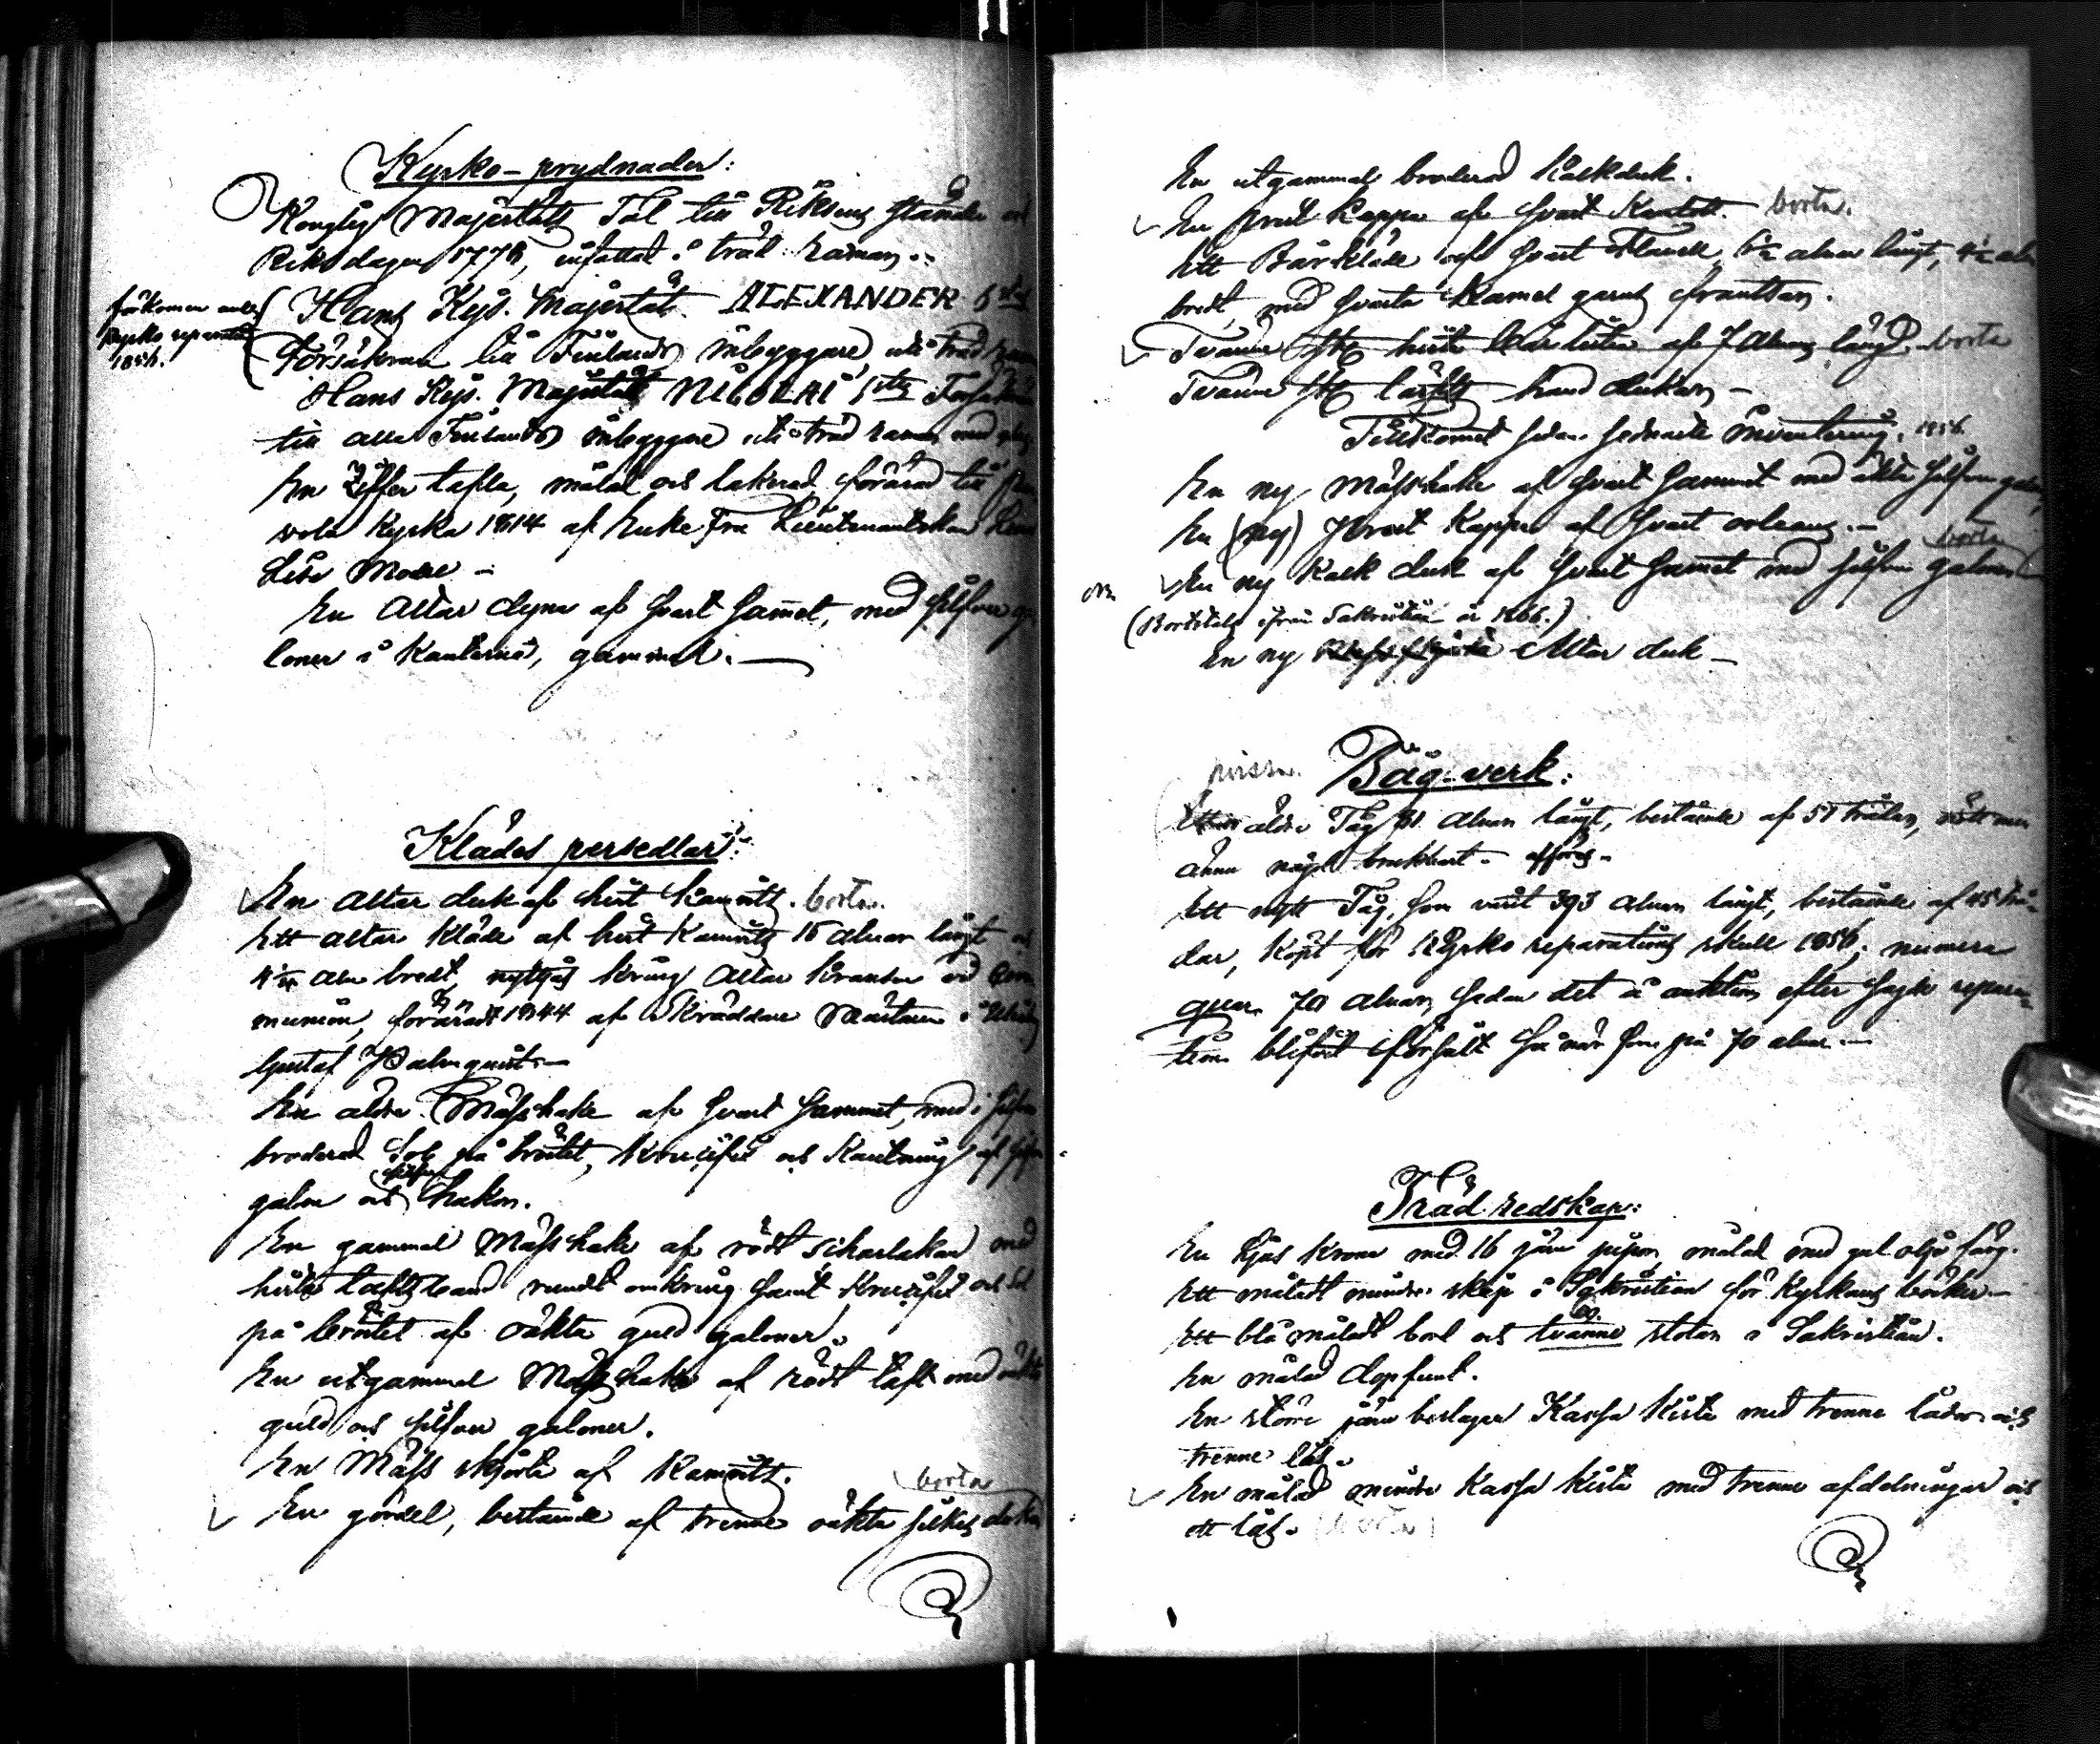 Kyrko-prydnader:
Konglig Majestäts Tal till Riksens Ständer
Riksdagen 1778, infattat i träd raman.
förkommen under
Kyrko reparation
1856.
Hans Kejs. Majestät ALEXANDER 1sta
Försäkran till Finlands inbyggare, uti träd
Hans Kejs. Majestät NICOLAI 1sta Försäkran
till alla Finlands inbyggare uti träd raman med
En Ziffer tafla, målad och lakerad förärad till
vola Kyrka 1814 af Enke Fru Lieutenantskan
Lisa
En Altar dyna af svart sammet, med silfver ga
loner i kanterna, gammal.
Klädes persedlar:
En altar duk af hvit kamritt. borta.
Ett altar kläde af hvit kamritt 16 alnar långt
4½ aln bredt, nyttjas kring Altar kransen vid Com
munion, förärat 1844 af Skräddare Mästaren i
Gustaf Palmquist.
En äldre Mässhake af svart sammet, med i silfver
broderad Sol på bröstet, Krucifix och Kantning af
silfver
galon och hakor.
En gammal Mässhake af rödt scharlakan med
hvita taftsband rundt omkring samt Krucifix och Sol
på bröstet af oäkta guld galoner.
En utgammal Mässhake af rödt taft med oäkta
guld och silfver galoner.
En Mäss skjorta af Kamritt.
borta
En gördel, bestående af trenne oäkta silkes
En utgammal broderad kalkduk.
En prest kappa af svart borta.
Ett Bårkläde af svart Flanell, 6½ alnar långt, 4½ aln
bredt, med svarta Kamel garns frantsar.
Tvänne st: hvita af 7 Alnars längd. borta
Tvänne st: lärfts hand dukar –
Tillkommet sedan sednaste inventering, 1856.
En ny Mässhake af svart sammet med äkta silfver galon,
En (ny) Prest Kappa af svart orleans. –
borta
En ny kalk duk af svart sammet med silfver galoner
(Bortstulen ifrån Sakristian år 1866.)
En ny Altar duk –
Tåg-verk:
äldre Tåg 81 alnar långt, bestående af 51 trådar, nött men
ännu något brukbart. afföres.
Ett nytt Tåg, som varit 393 alnar långt, bestående af 45 trå-
dar, köpt för Kyrko reparations skull 1856; numera
qvar 70 alnar, sedan det å auktion efter sagde repara-
tion blifvit försålt så när som på 70 alnar. –
Träd redskap:
En Ljus krona med 16 järn pipor, målad med gul olje färg.
Ett måladt mindre skåp i Sakristian för Kyrkans böcker –
Ett blå måladt bord och tvänne stolar i Sakristian.
En målad dopfunt.
En större järn beslagen Kassa kista med trenne lådor och
trenne lås.
En målad mindre Kassa kista med trenne afdelningar och
ett lås. (borta)